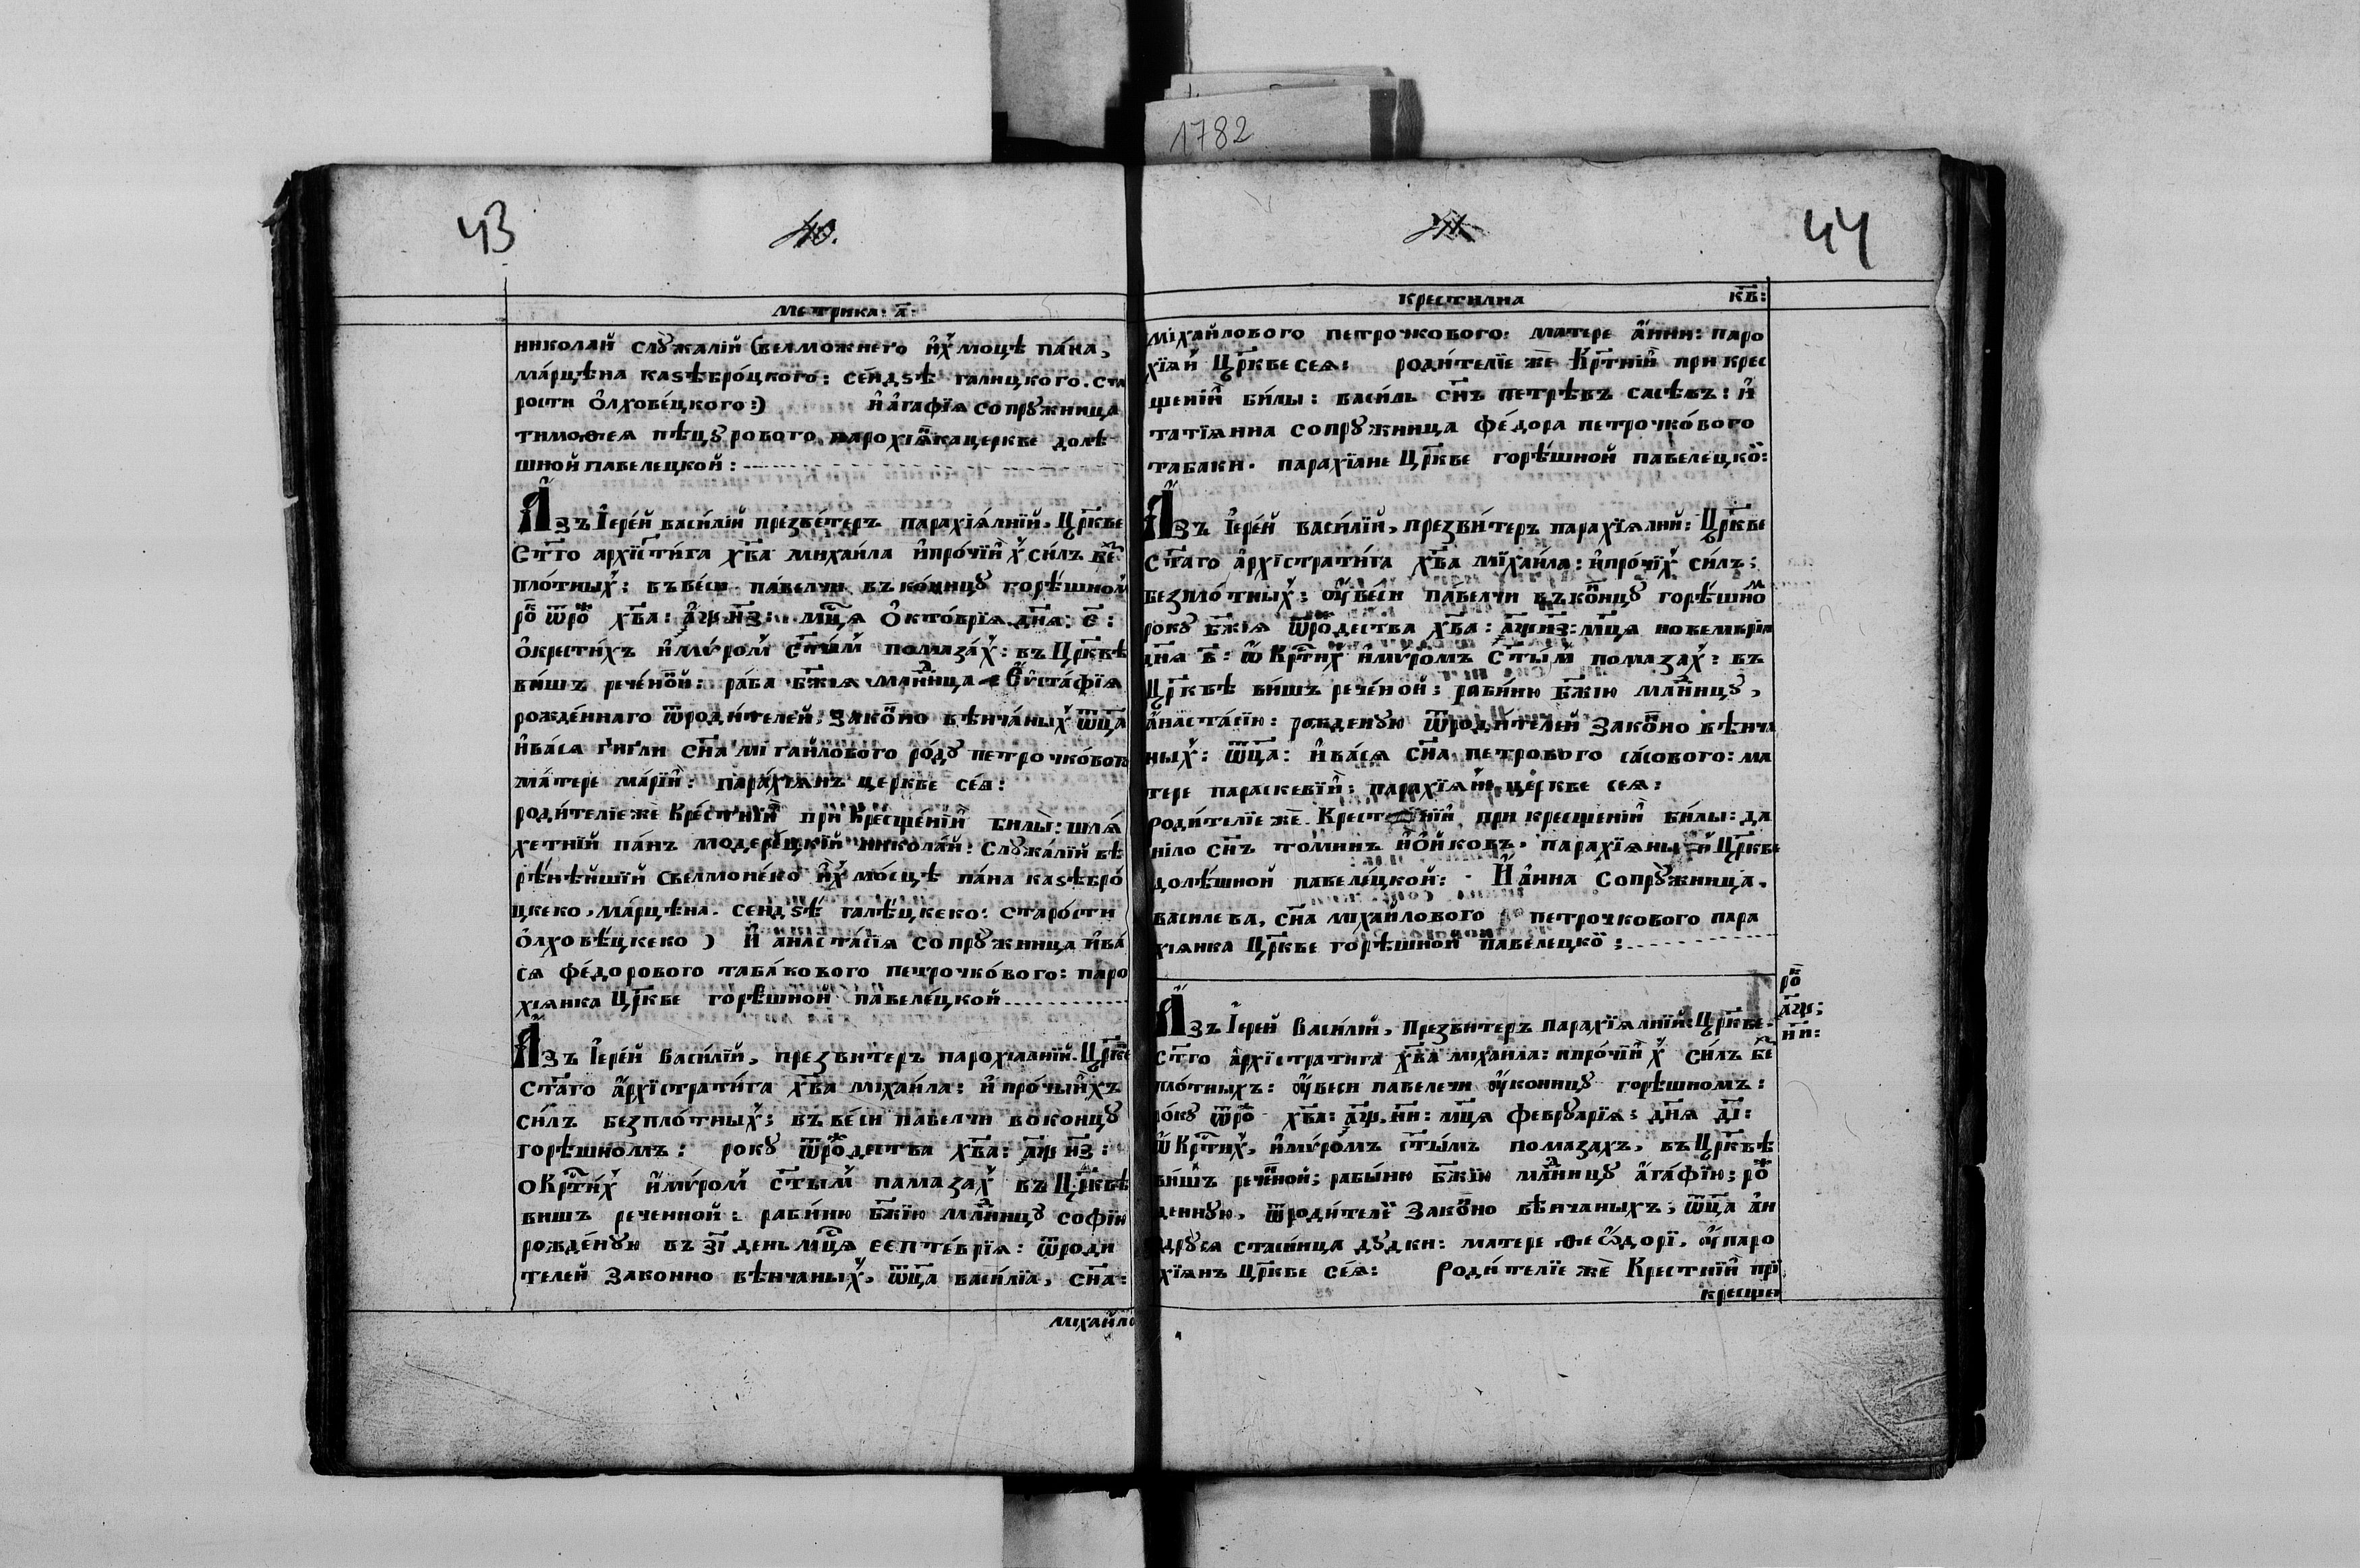 1782
43
40.
Метрика: а҃:
николай слꙋжалїй (велможнего и҆хъ моцѣ па́на,
ма́рцѣна каѕѣбро́цкого: се́ндѕѣ галицкого. ста
рости о҆лхове́цкого:) и҆ а҆гафїѧ сопрꙋжница
тимоѳеѧ пѣцꙋрового парохїѧ҆нка церкве долѣ
шной павелецкой:
А҆зъ І҆ере́й васи́лїй презве́теръ парахїѧ́лнїй, Цр҃кве
Ст҃го архїсти́га хв҃а михаи́ла и҆про́чїйх си́лъ бе
пло́тных: въ ве́си па́велчи въ ко́нцꙋ горѣ́шном
ро ѿро хв҃а: а҃ѱн҃з: мц҃ѧ О҆кто́врїѧ дн҃ѧ: є҃:
о҆крести́хъ и҆ мѵром ст҃ы́м помаза́х: въ Цр҃квѣ
ви́шъ рече́ной: ра́ба бж҃їѧ млⷣнца Еѵста́фїѧ
рожде́ннаго ѿроди́телей: зако́но вѣнча́ных ѿц҃а́
и҆ва́сѧ гигли сн҃а мїгайлового ро́дꙋ петрочко́вого
ма́тере ма́рїи: пара́хїѧнъ церкве се́ѧ:
роди́телїе же Кре́стнїи при кресще́нїи були: шлѧ́
хетнїй па́нъ модере́цкїй николай: Слꙋжа́лїй вѣ
рѣ́нѣйшїй свелмоне́ко и҆х мо́сцѣ па́на каѕѣбро́
цкеко. ма́рцѣна. сендѕѣ́ галѣ́цкеко: старо́сти
о҆лховѣ́цкеко ) И҆ анаста́сїѧ сопрꙋжница и҆ва́
сѧ фе́дорового таба́кового петрочко́вого: паро
хїѧнка Цр҃кве горѣшной павеле́цкой
А҆зъ І҆ере́й Васи́лїй, презвитеръ парохїалнїй. Цр҃кве
Ст҃аго а҆рхїстрати́га хв҃а мїхаи́ла: и҆ про́чыихъ
си́лъ безпло́тных: въ ве́си павелчи во концꙋ
горѣ́шномъ: рокꙋ ѿро́дества хв҃а: а҃ѱн҃з:
о Кр҃ти́х и҆мѵ́ром ст҃ым памазах въ Цр҃квѣ
вишъ реченной: раби́ню бж҃їю млⷣнцꙋ софїю
рожде́нꙋю въ з҃ї день мц҃ѧ септе́врїѧ: ѿроди
телей законно вѣнчаных, ѿц҃а васи́лїа, сн҃а:
мїхайло
44
Крестилна
к҃в:
мїха́йлового петрочкового: матере а҆нни: паро
хїѧн Цр҃кве сеѧ: роди́телїе же Кр҃тнїи при крес
щенїи би́лы: васи́ль сн҃ъ петрѣвъ сасѣвъ: и҆
татїѧнна сопрꙋжница фе́дора петрочко́вого
табаки. парахїане Цр҃кве горѣ́шной павелецко:
А҆зъ І҆ере́й васи́лїй, презви́теръ парахїѧлний: Цр҃кве
ст҃аго а҆рхїстрати́га хв҃а мїхаи́ла: и҆про́чїх си́лъ:
безпло́тных: ꙋ҆ве́си па́велчи въ ко́нцꙋ горѣ́шном
рокꙋ бж҃їѧ ѿро́дества хв҃а: а҃ѱн҃з: мц҃ѧ новемврїѧ
дн҃ѧ в҃: ѡ҆Кр҃тих и҆мѵромъ Ст҃ы́м помазах: въ
Цр҃квѣ ви́шъ рече́ной: раби́ню бж҃їю млⷣнцꙋ,
а҆наста́сїю: рожденꙋю ѿроди́телей зако́но вѣнча
ных: ѿц҃а: и҆ва́сѧ сн҃а петрового са́сового: ма
тере параскевїи: парахїѧн церкве сеѧ:
роди́телїе же Крестнїи при кресщенїи би́лы: да
нїло сн҃ъ то́минъ парахїѧны Цр҃кве
долѣ́шной павеле́цкой: И҆ а҆нна сопрꙋ́жница.
василева, сн҃а мїха́йлового петрочкового пара
хїѧнка Цр҃кве горѣшной павелецко:
ро
а҃ѱ:
н҃и:
А҆зъ І҆ере́й Васи́лїй, Презвитеръ парахїѧлнїй: Цр҃кве.
ст҃го а҆рхїстратига хв҃а мїхаила: ипро́чїйх си́лъ бе
пло́тныхъ: ꙋ҆веси павелечи ꙋ҆концꙋ горѣшномъ:
року ѿро хв҃а: а҃ѱ.н҃и: мц҃ѧ феврꙋарїѧ: дн҃ѧ д҃ї:
ѡ҆Кр҃тих, и҆мѵро́мъ ст҃ы́мъ помазахъ, въ Цр҃квѣ
ви́шъ рече́ной; рабы́ню бж҃їю млⷣнцꙋ а҆га́фїю; ро
деннꙋю, ѿроди́теле Зако́но вѣнчаныхъ; ѿц҃а а҆н
дрꙋсѧ стасинца дꙋдки: матере ѳеѡ҆дорї, ꙋ҆паро
хїѧнъ Цр҃кве се́ѧ: Роди́телїе же Крестнїи при
кресщен